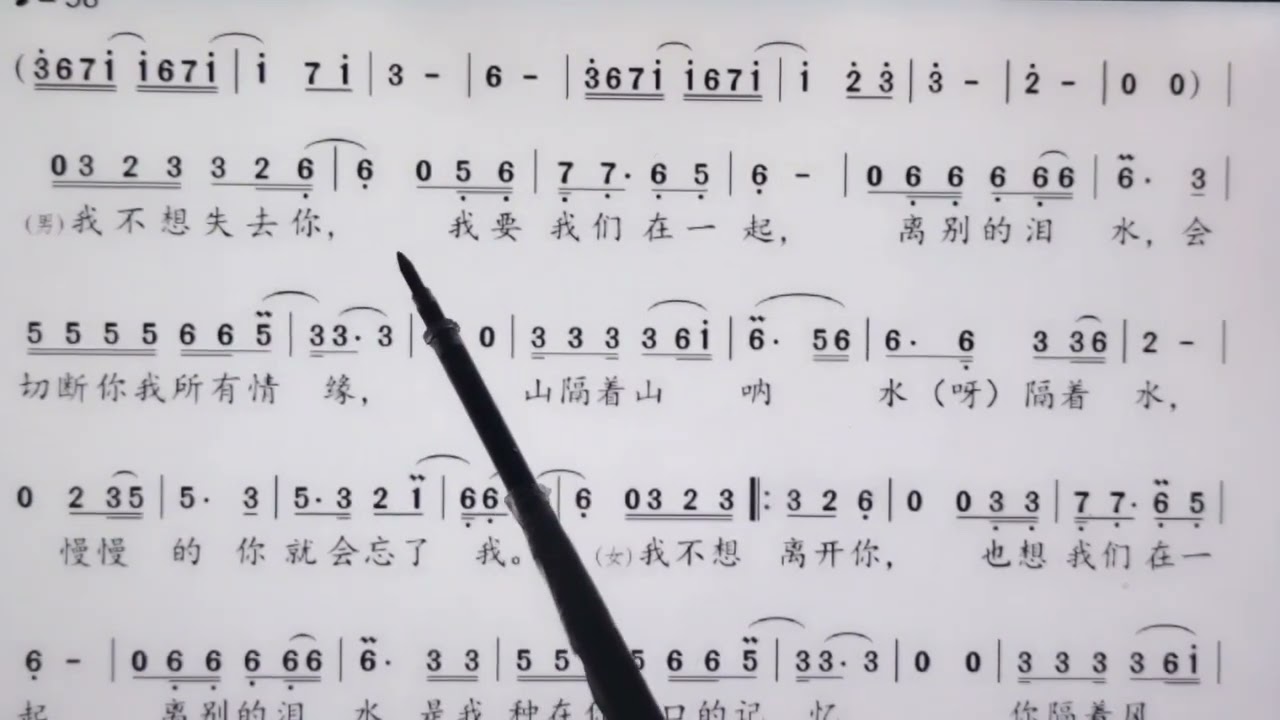 (3671 1671 | 1 7 1 | 3 - | 6 - | 3671 1671 | 1 2 3 | 3 - | 2 - | 0 0) |
0 3 2 3 3 2 6 | 6 0 5 6 | 7 7. 6 5 | 6 - | 0 6 6 6 6 6 | 6. 3 |
(男)我不想失去你, 我要我们在一起, 离别的泪 水, 会
5 5 5 5 6 6 5 | 3 3. 3 | 0 | 3 3 3 3 6 1 | 6. 5 6 | 6. 6 3 3 6 | 2 - |
切断你我所有情 缘, 山隔着山 呐 水(呀)隔着 水,
0 2 3 5 | 5. 3 | 5. 3 2 1 | 6 6 | 6 0 3 2 3 ‖: 3 2 6 | 0 0 3 3 | 7 7. 6 5 |
慢慢 的 你就会忘了 我。 (女)我不想 离开你, 也想我们在一
6 - | 0 6 6 6 6 6 | 6. 3 3 | 5 5 5 6 6 5 | 3 3. 3 | 0 0 | 3 3 3 3 6 1 |
起 离别的泪 水 是我种在 口的记 忆 你隔着风